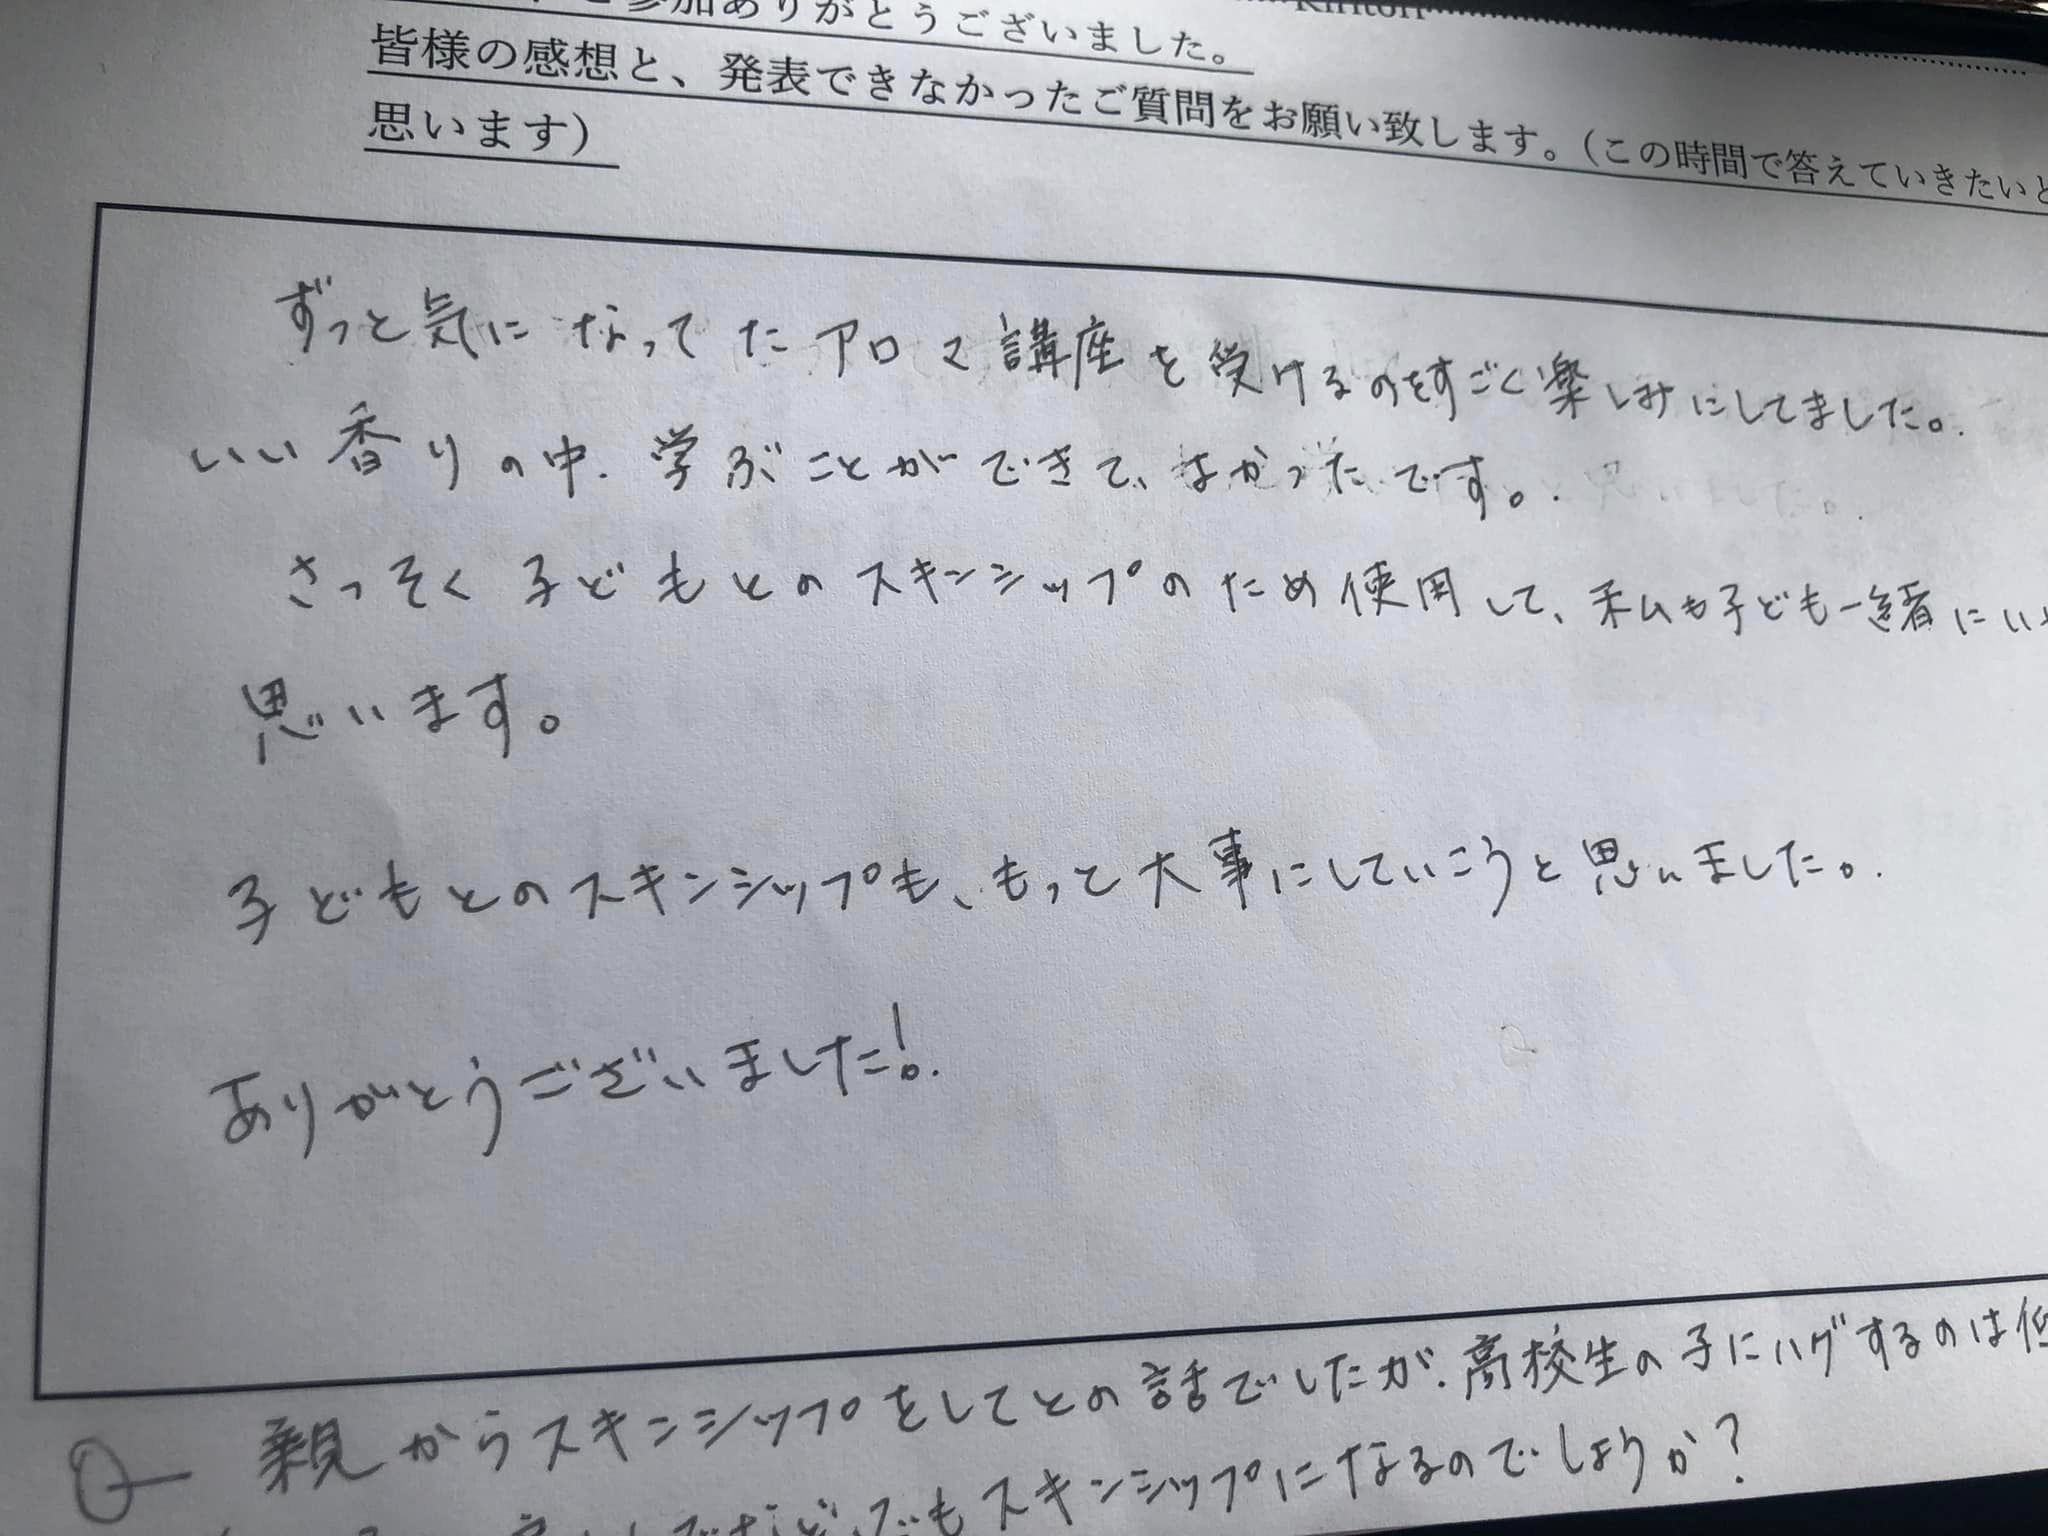 参加ありがとうございました。
皆様の感想と、発表できなかったご質問をお願い致します。（この時間で答えていきたいと
思います）
ずっと気になってたアロマ講座を受けるのをすごく楽しみにしてました。
いい香りの中、学ぶことができて、よかったです。
さっそく子どもとのスキンシップのため使用して、私も子ども一緒にいや
思います。
子どもとのスキンシップも、もっと大事にしていこうと思いました。
ありがとうございました!
Q 親からスキンシップをしてとの話でしたが、高校生の子にハグするのは
でもスキンシップになるのでしょうか?